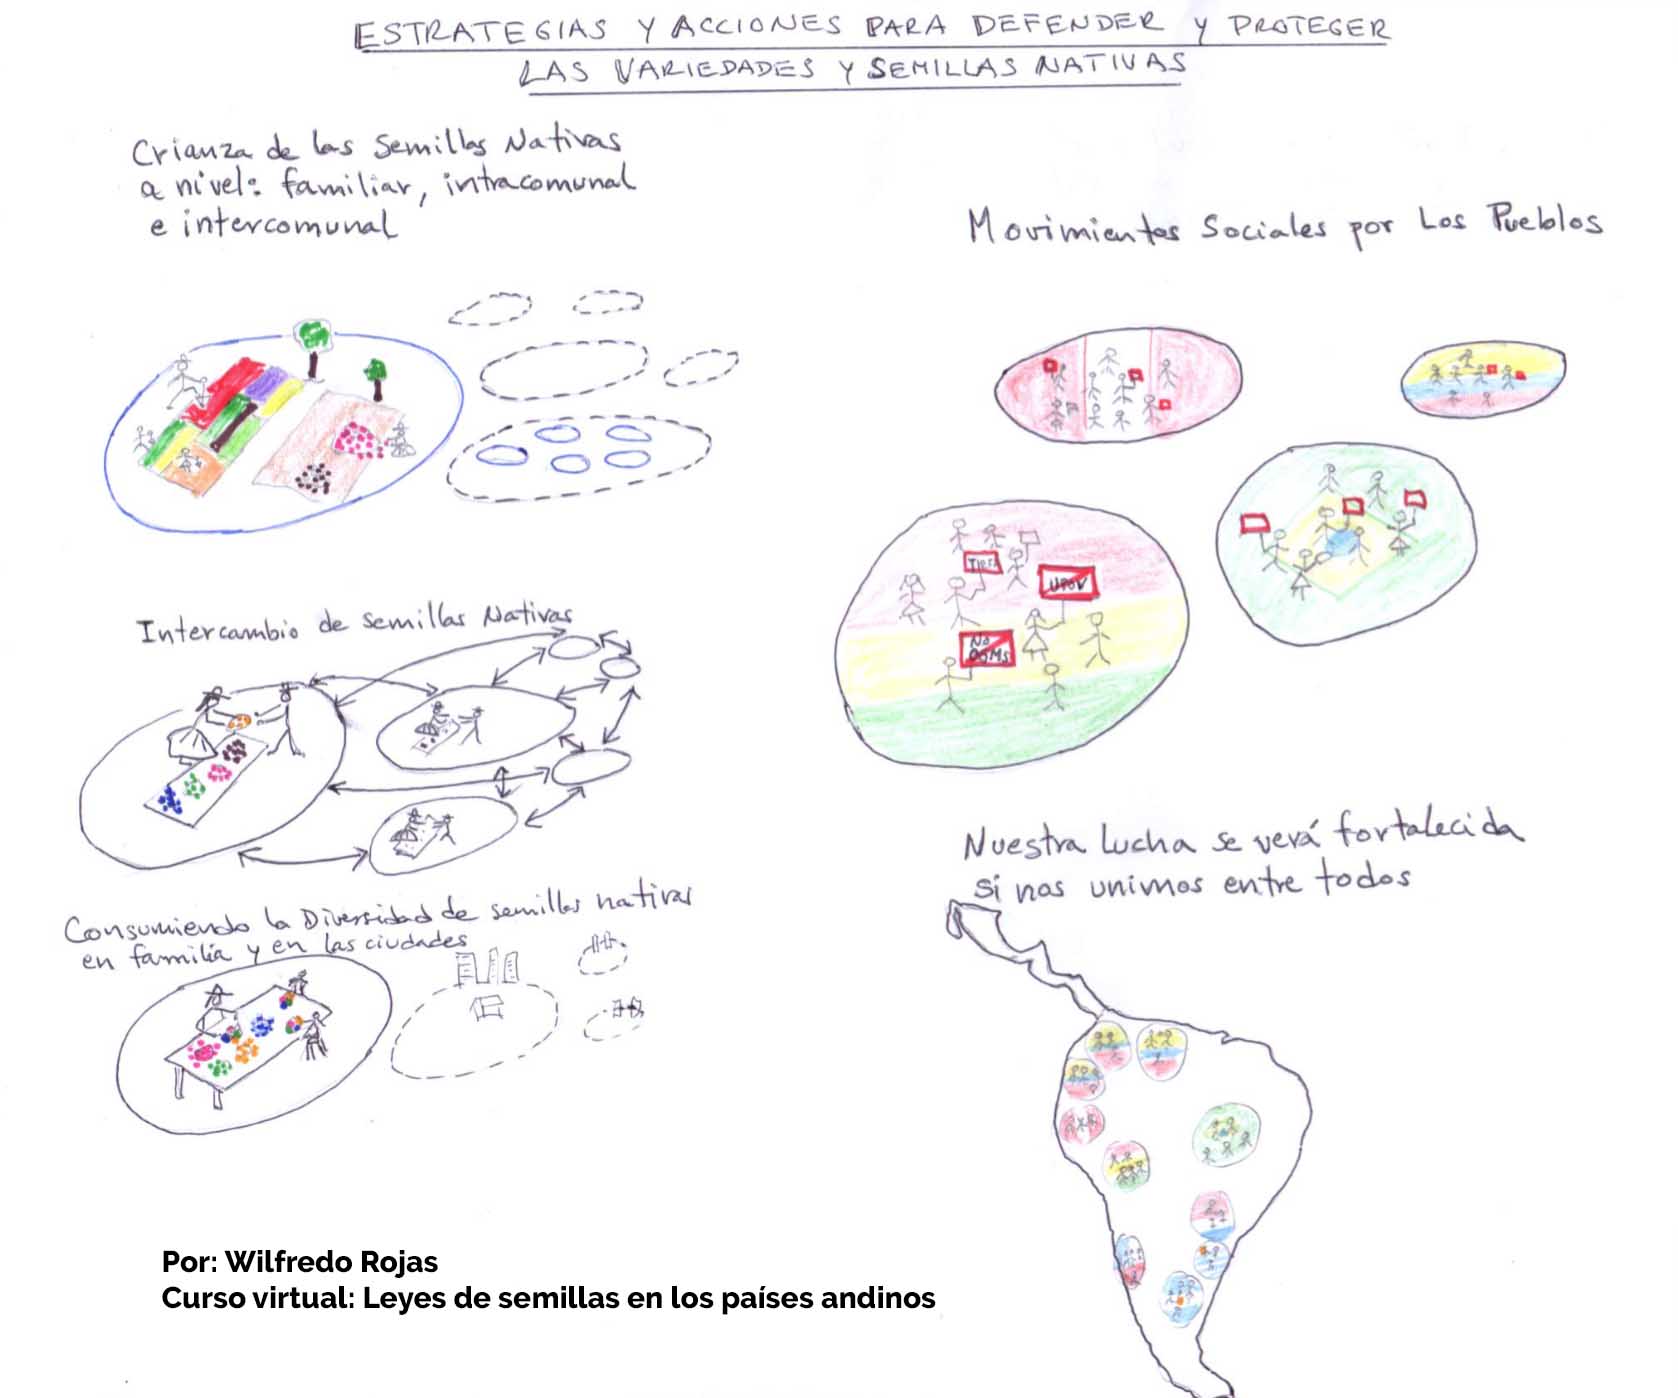 ESTRATEGIAS Y ACCIONES PARA DEFENDER Y PROTEGER
LAS VARIEDADES Y SEMILLAS NATIVAS
Crianza de las Semillas Nativas
a nivel: familiar, intracomunal
e intercomunal
Intercambio de semillas Nativas
Consumiendo la Diversidad de semillas nativas
en familia y en las ciudades
Movimientos Sociales por Los Pueblos
UPOV
No
OGMs
Nuestra Lucha se verá fortalecida
si nos unimos entre todos
Por: Wilfredo Rojas
Curso virtual: Leyes de semillas en los países andinos